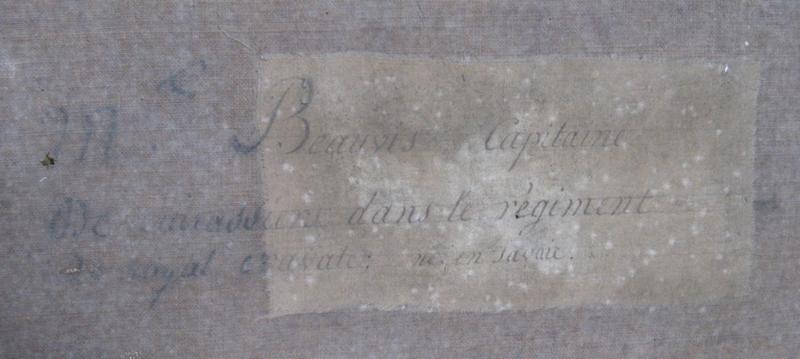 Mr. Beauvis Capitaine
De cuirassiers dans le régiment
de royal cravate; né, en savoie.